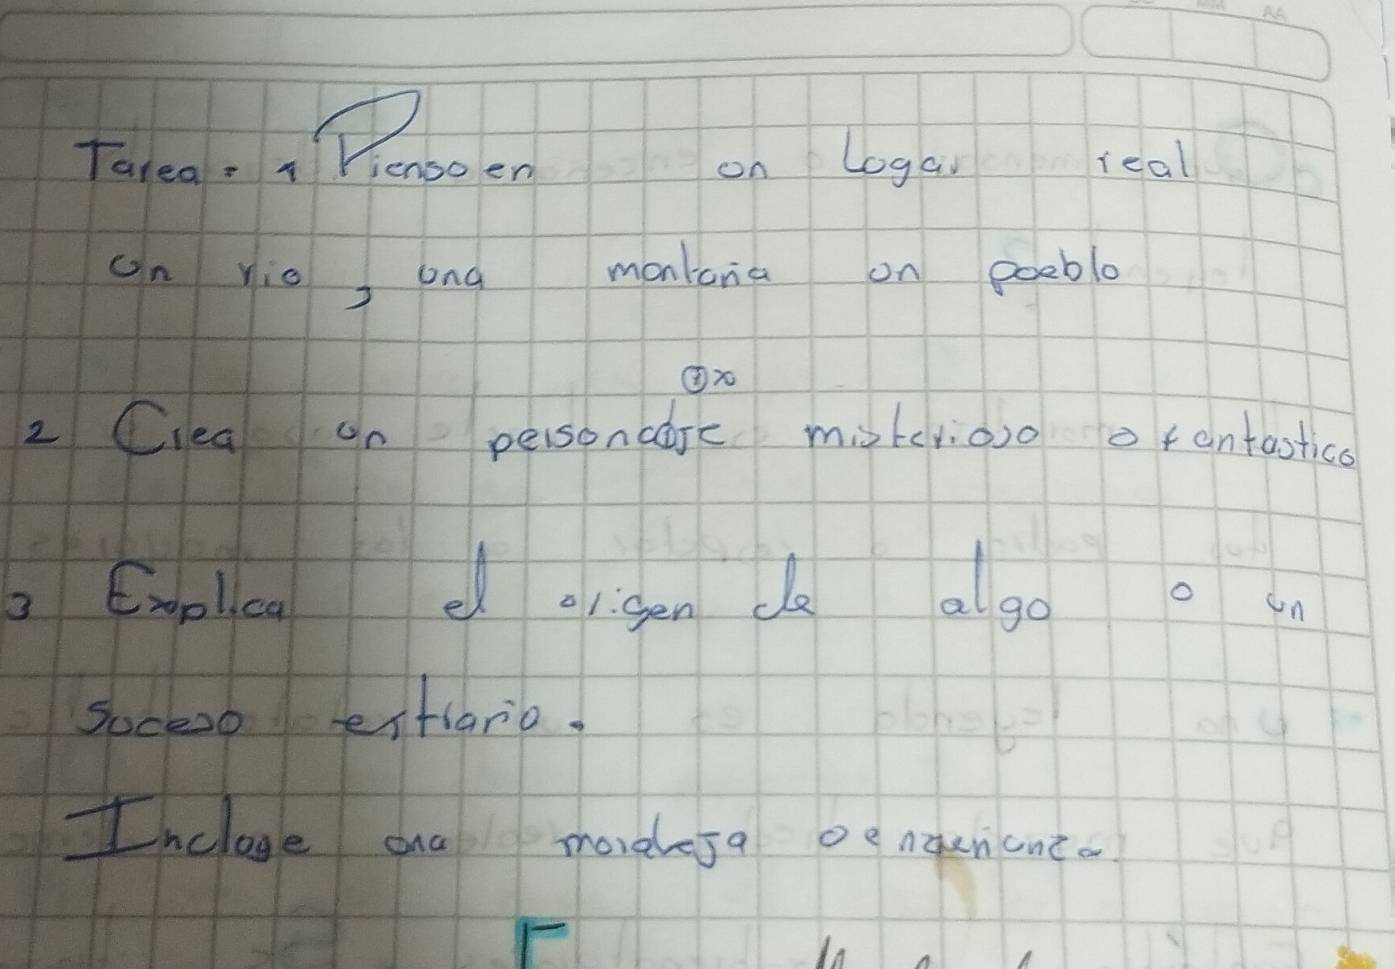 Tarea: 1 Pienso en un Lugar real
un rio, una montaña un pueblo
2 Crea un personaje misterioso o fantastico
3 Explica el origen de algo o un
suceso extraño.
Incluye una moraleja o enzeñanza